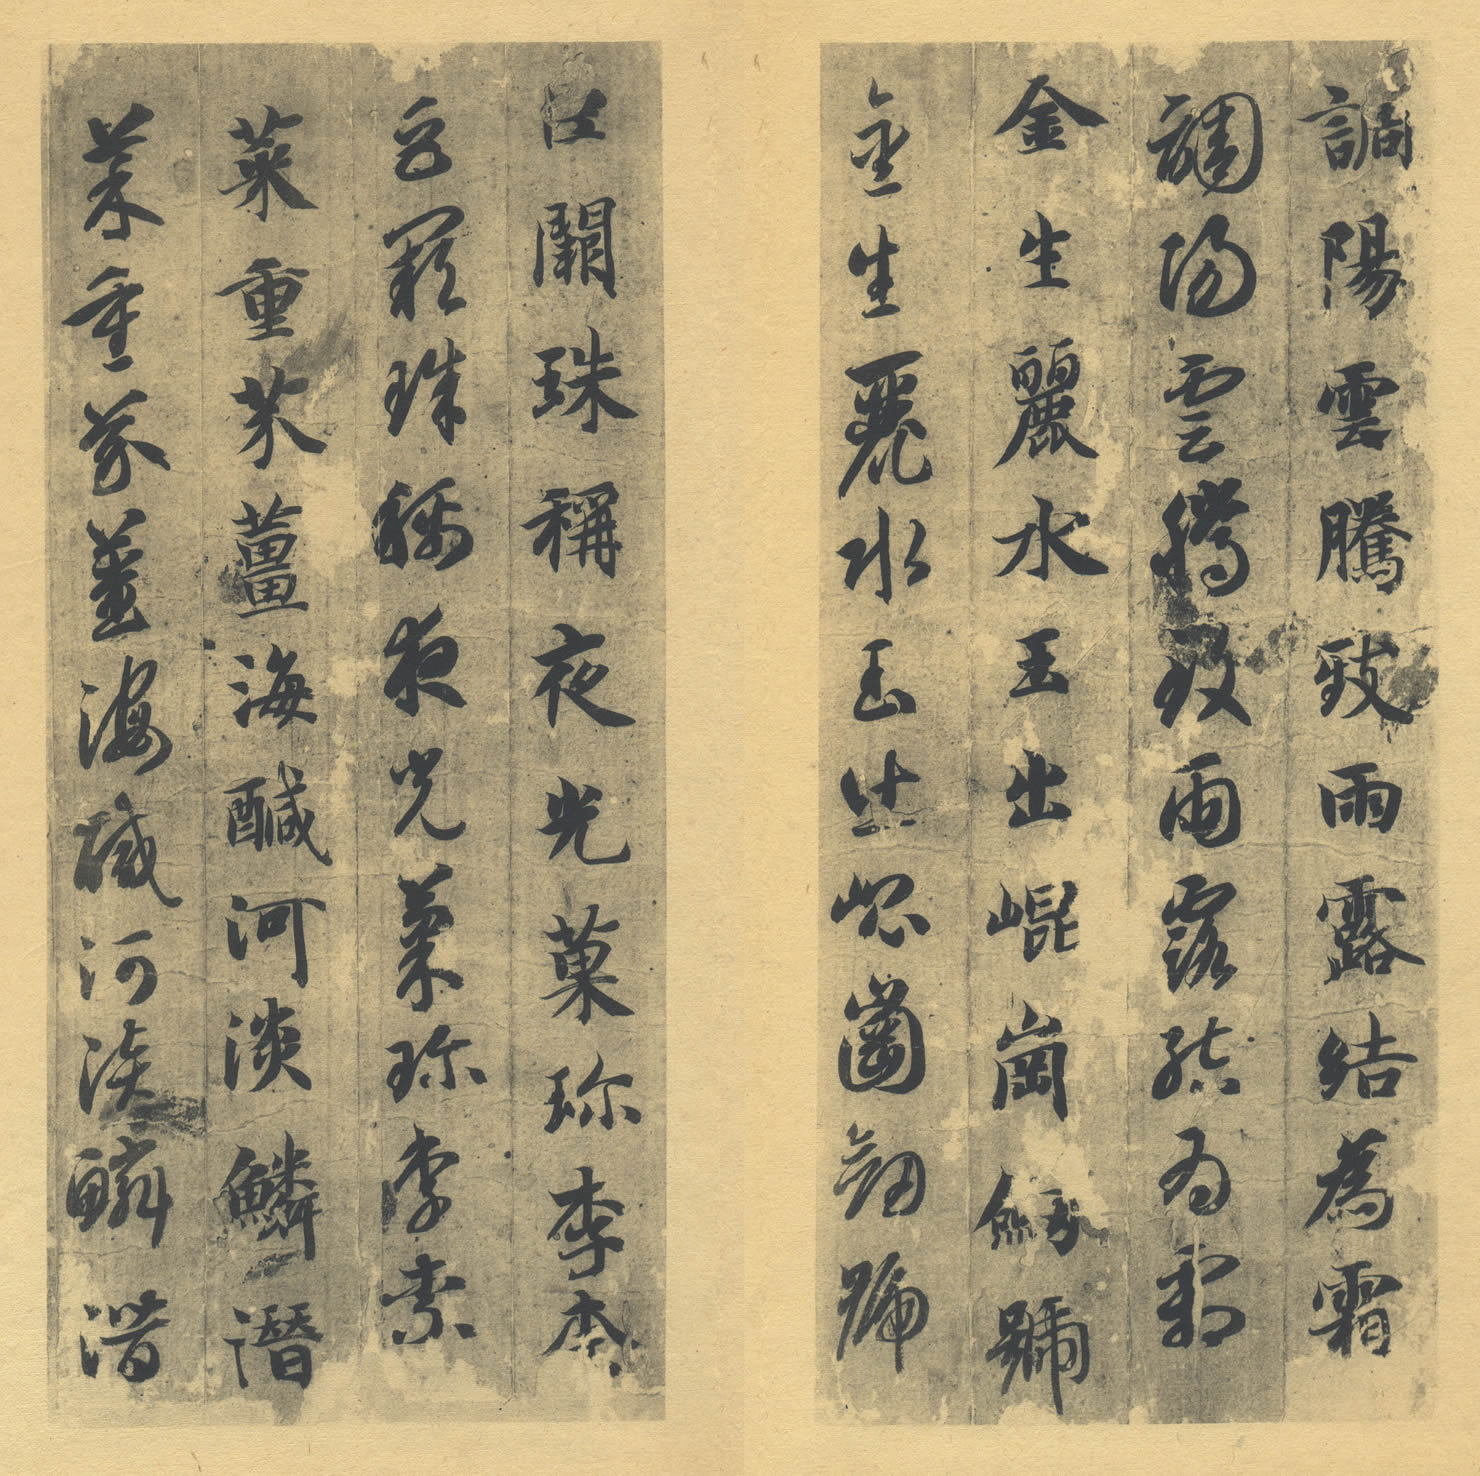 調陽雲騰致雨露結為霜
調陽雲騰致雨露結為霜
金生麗水玉出崐崗劔號
金生麗水玉出崐崗劔號
巨闕珠稱夜光菓珍李柰
巨闕珠稱夜光菓珍李柰
菜重芥薑海醎河淡鱗潛
菜重芥薑海醎河淡鱗潛